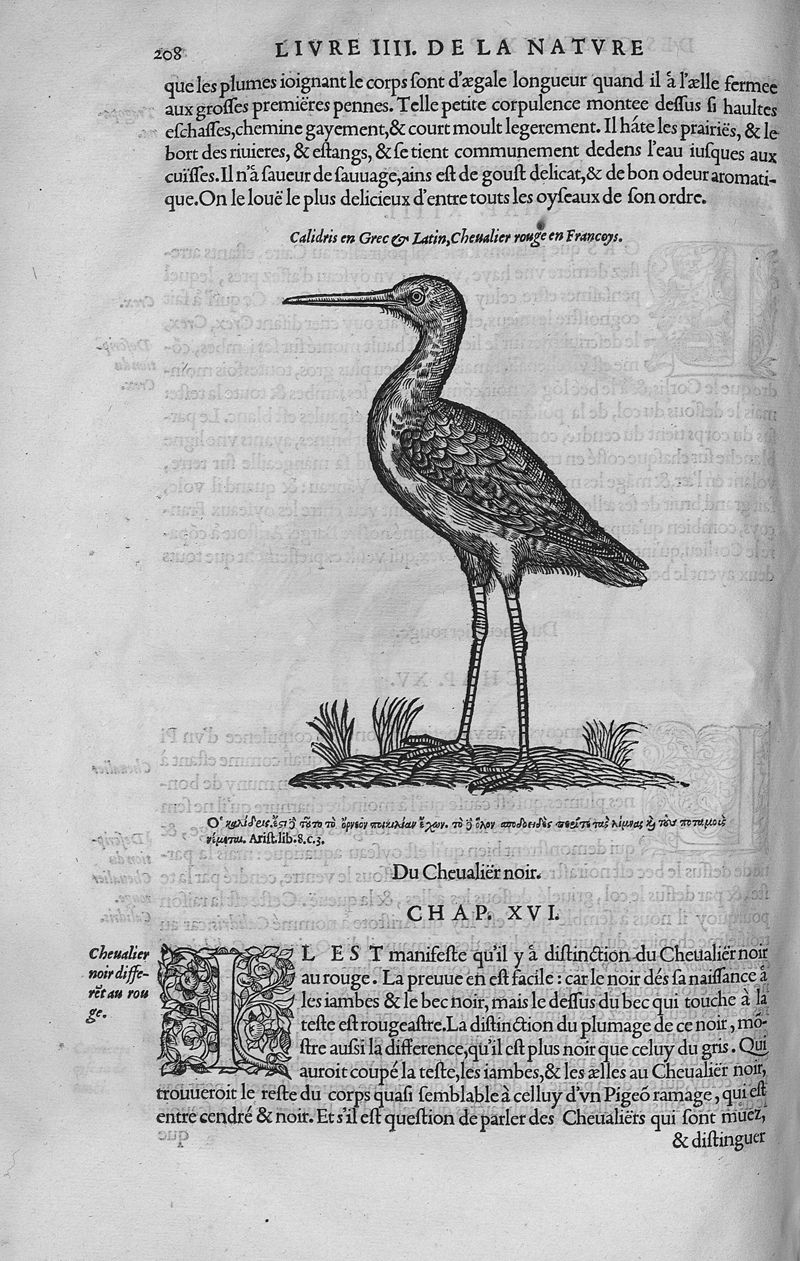 208 LIVRE IIII. DE LA NATVRE
que les plumes ioignant le corps ſont d'ægale longueur quand il á l'ælle fermee
aux groſſes premiëres pennes. Telle petite corpulence montee deſſus ſi haultes
eſchaſſes, chemine gayement, & court moult legerement. Il háte les prairiës, & le
bort des riuieres, & eſtangs, & ſe tient communement dedens l'eau iuſques aux
cuiſſes. Il n'á ſaueur de ſauuage, ains eſt de gouſt delicat, & de bon odeur aromati-
que. On le louë le plus delicieux d'entre touts les oyſeaux de ſon ordre.
Calidris en Grec & Latin, Cheualier rouge en Francoys.
Ariſt. lib. 8. c. 3.
Du Cheualiër noir.
CHAP. XVI.
Cheualier
noir diffe-
rēt au rou
ge.
IL EST manifeſte qu'il y á diſtinction du Cheualiër noir
au rouge. La preuue en eſt facile: car le noir dés ſa naiſſance á
les iambes & le bec noir, mais le deſſus du bec qui touche à la
teſte eſt rougeaſtre. La diſtinction du plumage de ce noir, mō-
ſtre auſsi la difference, qu'il eſt plus noir que celuy du gris. Qui
auroit coupé la teſte, les iambes, & les ælles au Cheualiër noir,
trouueroit le reſte du corps quaſi ſemblable à celluy d'vn Pigeō ramage, qui eſt
entre cendré & noir. Et s'il eſt queſtion de parler des Cheualiërs qui ſont muez,
& diſtinguer